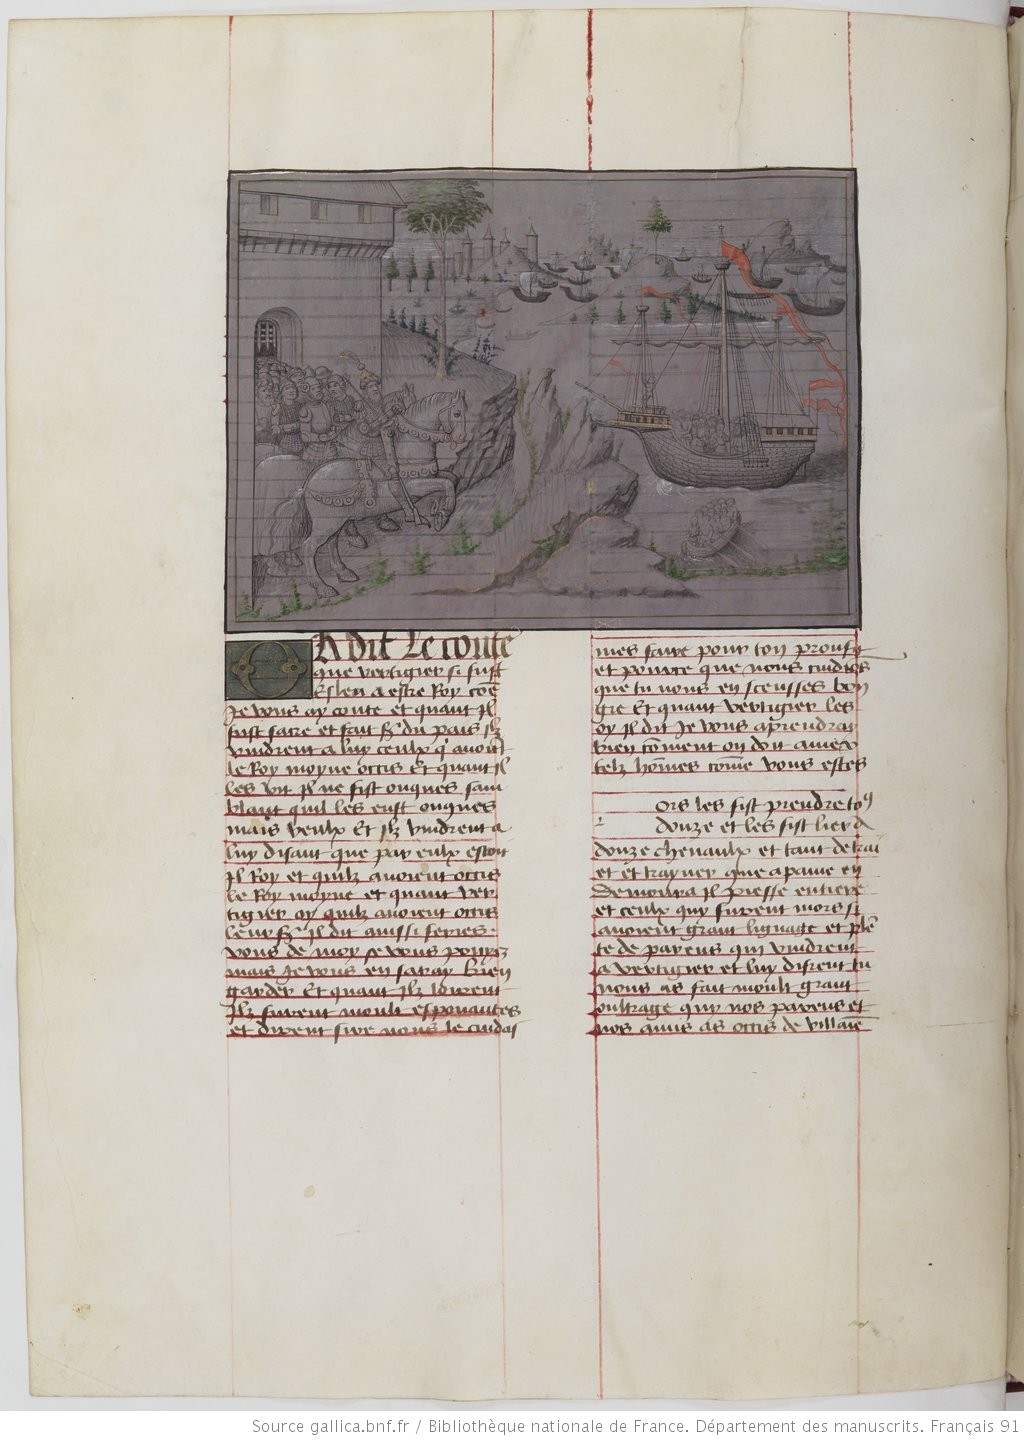 O
A dit le conte
que vertigier si fust
Esleu a estre Roy cōe
Je vous ay conte et quant il
fust sacre et fait sr̄ du pais Ilz
vindrent a luy ceulx q̄ avoiēt
le Roy moyne occis Et quant Il
les vit Il ne fist onques sam
blant quil les eust onques
mais veulx Et Ilz vindrent a
luy disant que par eulx estoit
Il Roy et quilz avoient occis
le Roy moyne et quant ver
tigier oy quilz avoient occis
leur sr̄ Il dit aussi feries
vous de moy se vous pouyez
mais Je vous en saray bien
garder Et quant Ilz loirent
Ilz furent moult espouantes
et dirent sire nous le cuidas
mes faire pour ton prouffit
et pource que nous cuidies
que tu nous en sceusses bon
gre Et quant vertigier les
oy Il dit Je vous aprendray
bien cōment on doit amer
telz hōmes cōme vous estes
l
ors les fist prendre to9
douze et les fist lier a
douze chevaulx et tant de trai
et et trayner que a paine en
demoura Il piesse entiere
et ceulx quy furent mors si
avoient grant lignage et plē
te de parens qui vindrent
a vertigier et luy disrent tu
nous as fait moult grant
oultrage quy nos parens et
nos amis as occis de villaīe
Source gallica.bnf.fr / Bibliothèque nationale de France. Département des manuscrits. Français 91